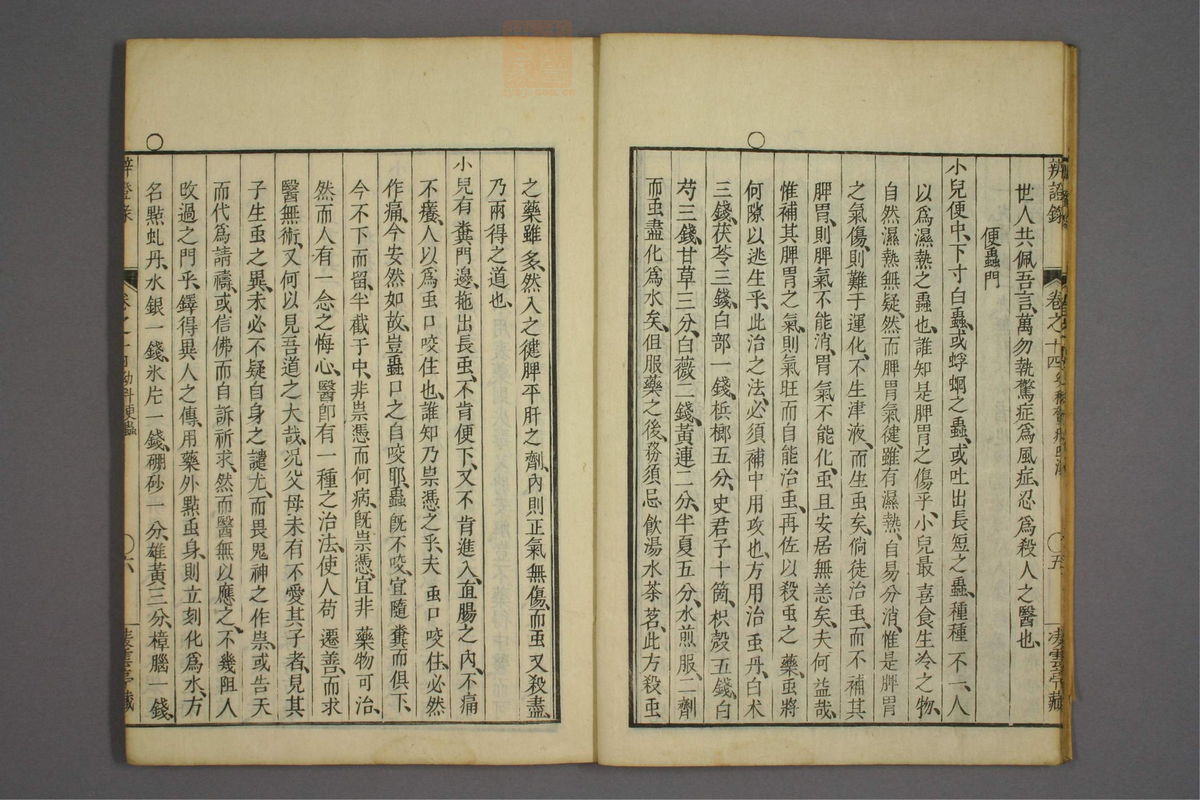 辨證錄 卷之十四 五 凌雲亭藏
世人共佩吾言、萬勿執驚症爲風症、忍爲殺人之醫也、
便蟲門
小兒便中、下寸白蟲、或蜉蛔之蟲、或吐出長短之蟲、種種不一、人
以爲濕熱之蟲也、誰知是脾胃之傷乎、小兒最喜食生冷之物、
自然濕熱無疑、然而脾胃氣健、雖有濕熱、自易分消、惟是脾胃
之氣傷、則難于運化、不生津液、而生虫矣、倘徒治虫、而不補其
脾胃、則脾氣不能消、胃氣不能化、虫且安居無恙矣、夫何益哉、
惟補其脾胃之氣、則氣旺而自能治虫、再佐以殺虫之藥、虫將
何隙以逃生乎、此治之法、必須補中用攻也、方用治虫丹、白术
三錢、茯苓三錢、白部一錢、梹榔五分、史君子十箇、枳殼五錢、白
芍三錢、甘草三分、白薇二錢、黃連二分、半夏五分、水煎服、二劑
而虫盡化爲水矣、但服藥之後、務須忌飲湯水茶茗、此方殺虫
之藥雖多、然入之健脾平肝之劑、內則正氣無傷、而虫又殺盡、
乃兩得之道也、
小兒有糞門邊、拖出長虫、不肯便下、又不肯進入直腸之內、不痛
不癢、人以爲虫口咬住也、誰知乃祟憑之乎、夫虫口咬住、必然
作痛、今安然如故、豈蟲口之自咬耶、蟲既不咬、宜隨糞而俱下、
今不下而留半截于中、非祟憑而何、病既祟憑、宜非藥物可治、
然而人有一念之悔心、醫卽有一種之治法、使人苟遷善、而求
醫無術、又何以見吾道之大哉、况父母未有不愛其子者、見其
子生虫之異、未必不疑自身之譴尤、而畏鬼神之作祟、或告天
而代爲請禱、或信佛而自訴祈求、然而醫無以應之、不幾阻人
攺過之門乎、鐸得異人之傳、用藥外點虫身、則立刻化爲水、方
名點虬丹、水銀一錢、氷片一錢、硼砂一分、雄黃三分、樟腦一錢、
辨證錄 卷之十四 幼科便蟲 六 凌雲亭藏